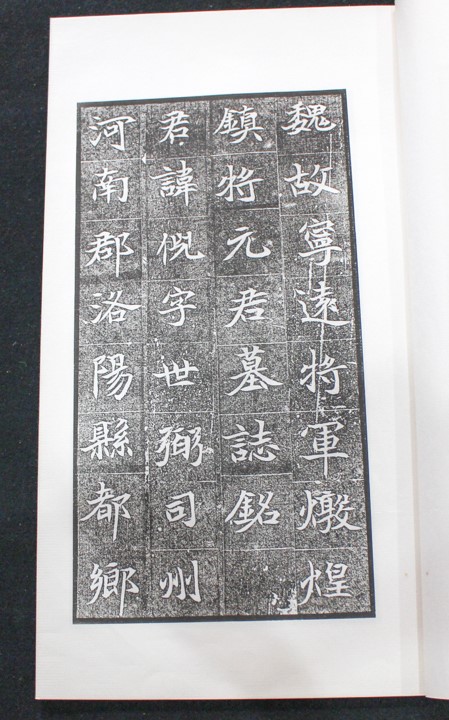 魏故寧遠將軍燉煌
鎮將元君墓誌銘
君諱倪字世弼司州
河南郡洛陽縣都鄉